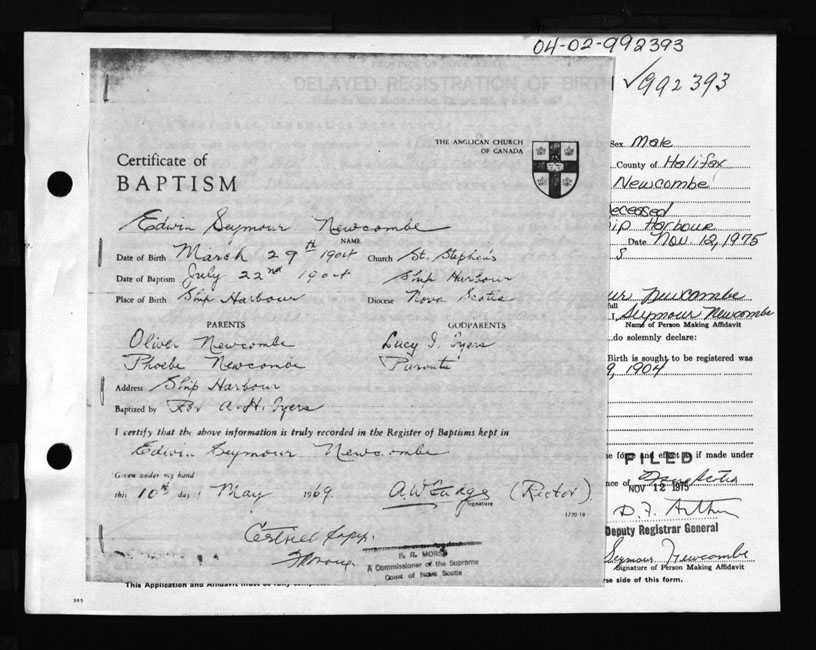 04-02-992393
✓992393
DELAYED REGISTRATION OF BIRTH
THE ANGLICAN CHURCH
OF CANADA
Certificate of
BAPTISM
Edwin Seymour Newcombe
NAME
Date of Birth March 29th 1904 Church St. Stephen's
Date of Baptism July 22nd 1904 Ship Harbour
Place of Birth Ship Harbour Diocese Nova Scotia
PARENTS GODPARENTS
Oliver Newcombe Lucy I. Tyers
Phoebe Newcombe Parents
Address Ship Harbour
Baptized by Rev A. H. Tyers
I certify that the above information is truly recorded in the Register of Baptisms kept in
Edwin Seymour Newcombe
Given under my hand
this 10th day of May 1969. (Rector)
Signature
1770-18
E. R. MORSE
A Commissioner of the Supreme
Court of Nova Scotia
Sex Male
County of Halifax
Newcombe
Deceased
ip Harbour
Date Nov. 12, 1975
S
ur Newcombe
full
I, Seymour Newcombe
Name of Person Making Affidavit
do solemnly declare:
Birth is sought to be registered was
9, 1904
me force and effect as if made under
FILED
nce of Nova Scotia
NOV 12 1975
Deputy Registrar General
Seymour Newcombe
Signature of Person Making Affidavit
This Application and Affidavit must be fully
rse side of this form.